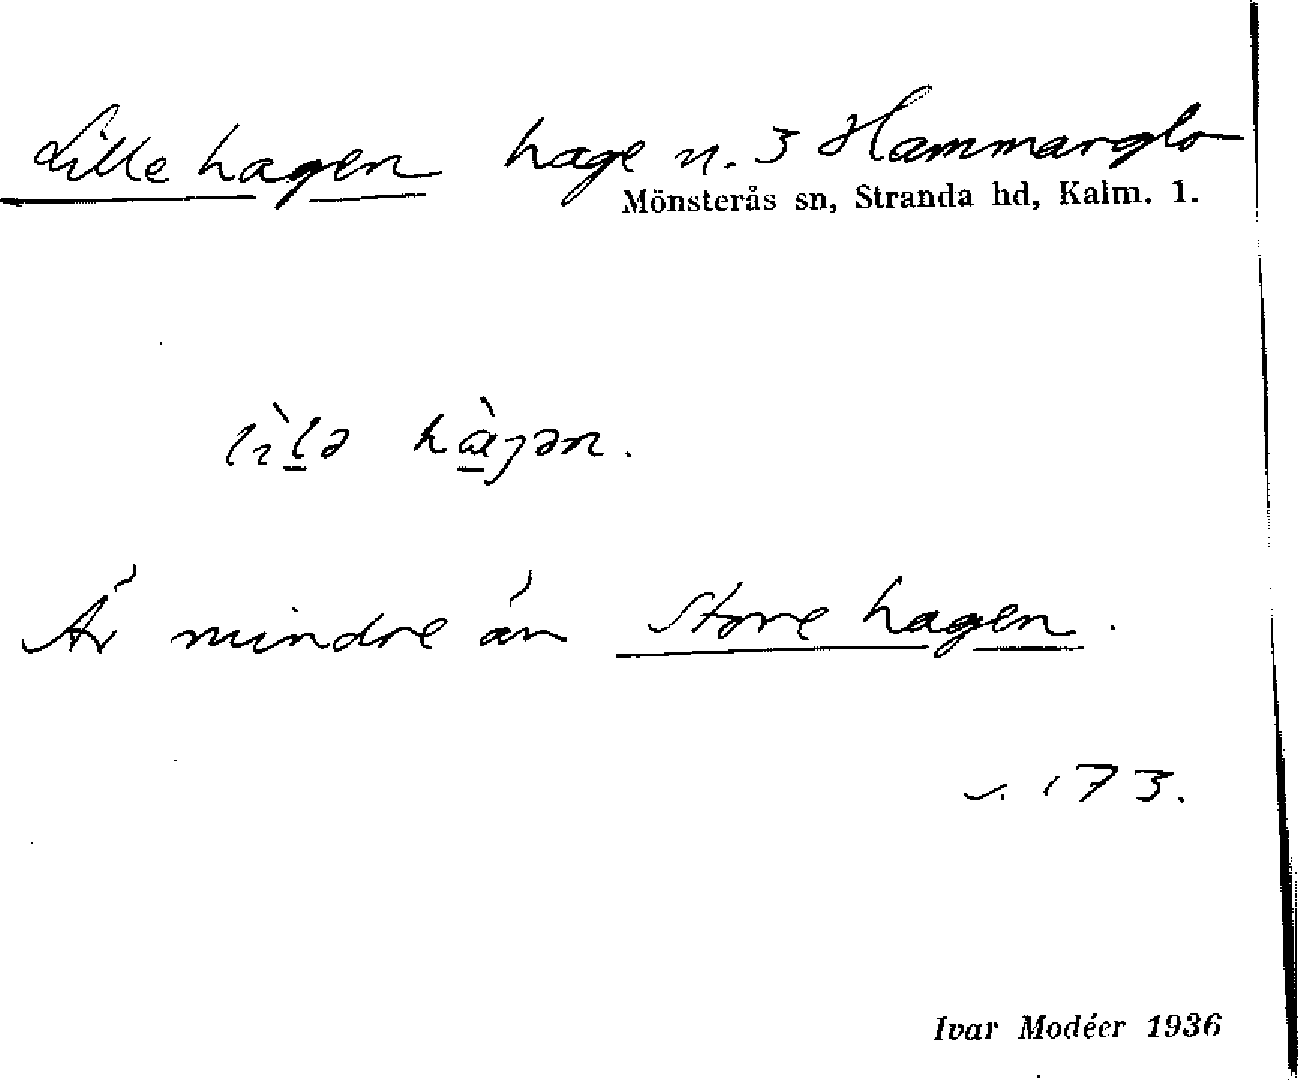 Lille hagen hage n. 3 Hammarglo
Mönsterås sn, Stranda hd, Kalm. l.
lìlə hàgən.
Är mindre än Store hagen.
s. 173.
Ivar Modéer 1936